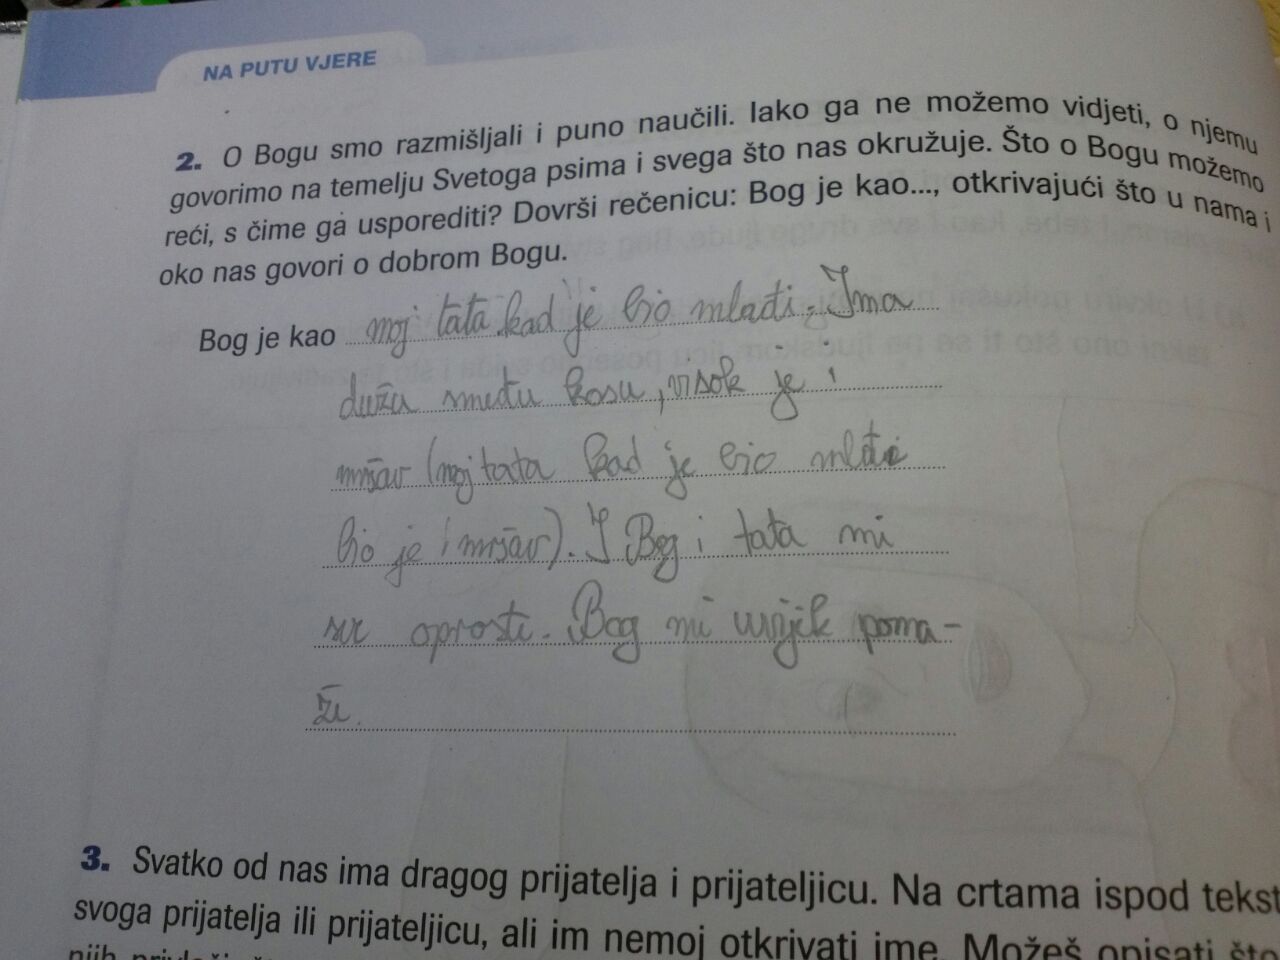 NA PUTU VJERE
2. O Bogu smo razmišljali i puno naučili. Iako ga ne možemo vidjeti, o njemu
govorimo na temelju Svetoga psima i svega što nas okružuje. Što o Bogu možemo
reći, s čime ga usporediti? Dovrši rečenicu: Bog je kao..., otkrivajući što u nama i
oko nas govori o dobrom Bogu.
Bog je kao moj tata kad je bio mlađi. Ima
dužu smeđu kosu, visok je i
mršav (moj tata kad je bio mlađi
bio je i mršav). I Bog i tata mi
sve oproste. Bog mi uvijek poma-
že.
3. Svatko od nas ima dragog prijatelja i prijateljicu. Na crtama ispod tekst
svoga prijatelja ili prijateljicu, ali im nemoj otkrivati ime. Možeš opisati što
njih